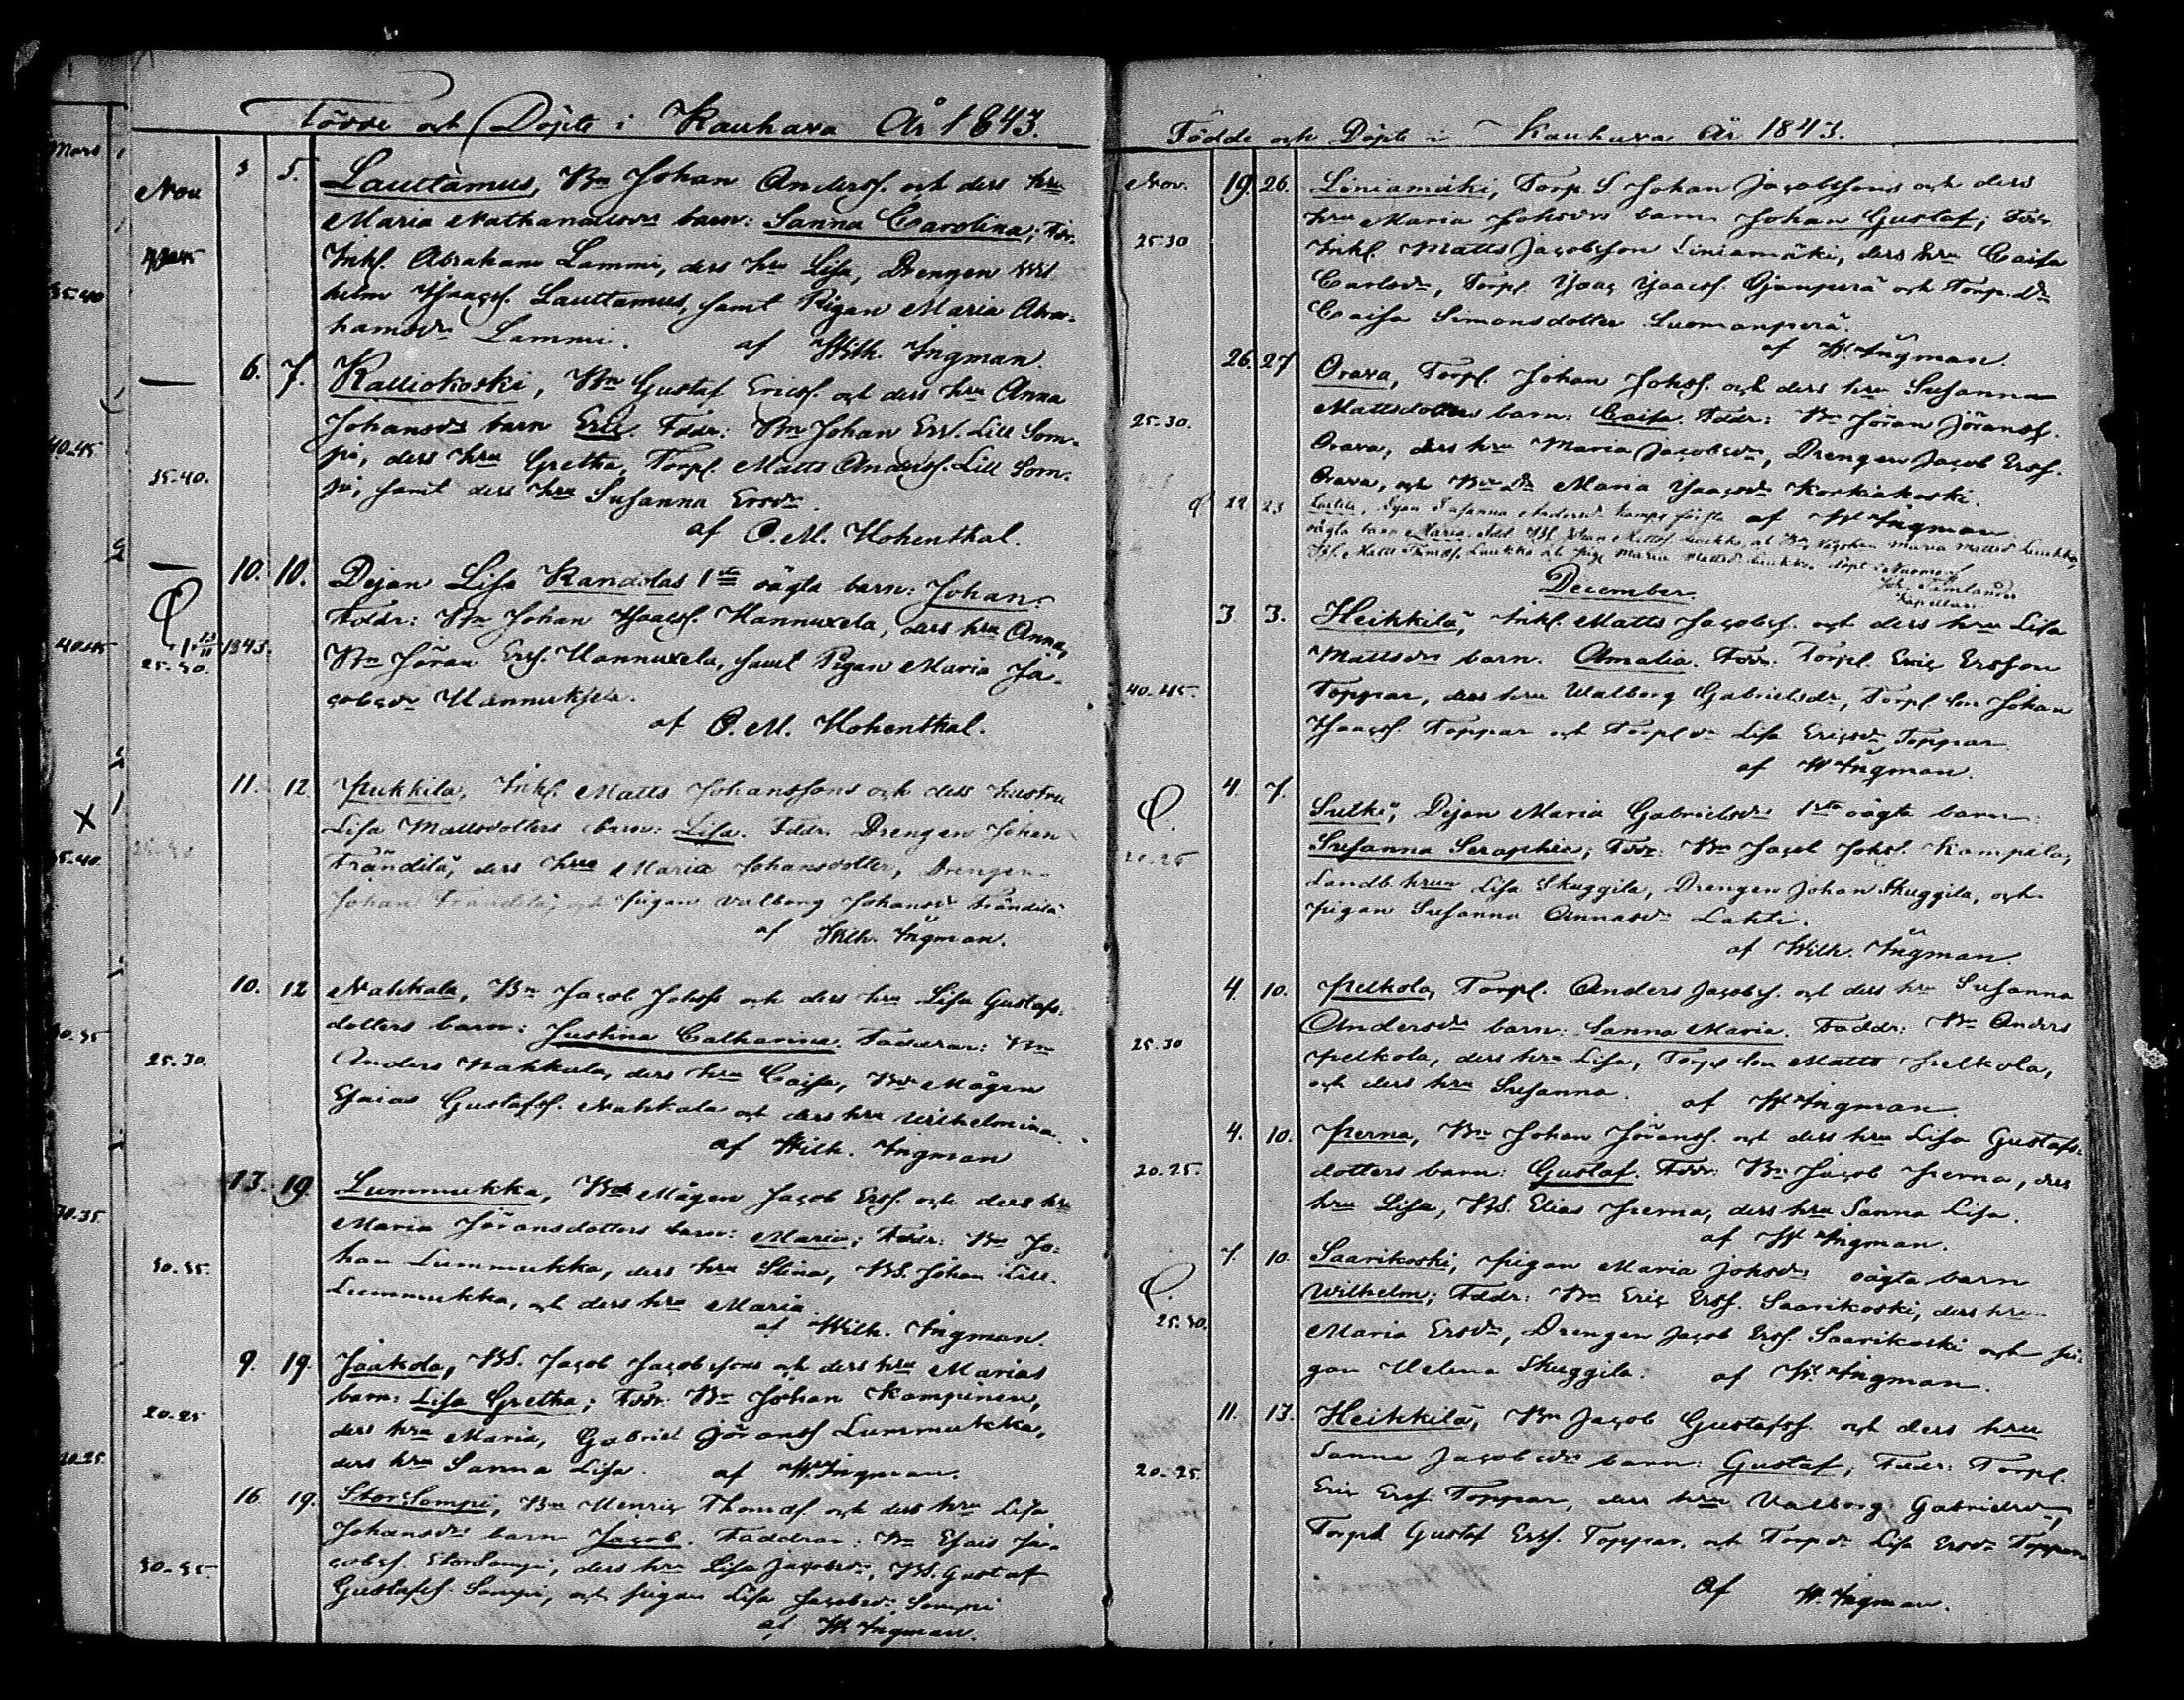 Födde och Döpte i Kauhava År 1843.
Mars
Nov
3 5. Lauttamus, Bn Johan Anderss. och dess hru
Maria Nathanaelsdrs barn: Sanna Carolina; Fdr.
40-45
Inhs. Abraham Lammi, dess hru Lisa, Drengen Wil-
35-40
helm Isaacs. Lauttamus, samt Pigan Maria Abra-
hamsdr Lammi. af Wilh. Ingman.
— 6. 7. Kalliokoski, Bn Gustaf Ericss. och dess hru Anna
Johansdrs barn Eric. Fddr: Bn Johan Ers. Lill Som-
40-45
pi, dess hru Gretha, Torp. Matts Anderss. Lill Som-
35-40.
pi, samt dess hru Susanna Ersdr.
af C. M. Hohenthal.
— 10. 10. Dejan Lisa Kandolas 1sta oägta barn: Johan.
Fddr: Bn Johan Isaacs. Hannuxela, dess hru Anna,
40-45
1 13/11 1843.
25-30.
Bn Jöran Ers. Hannuxela, samt Pigan Maria Ja-
cobsdr Hannuksela.
af C. M. Hohenthal.
11. 12 Pukkila, Inhs. Matts Johanssons och dess hustru
X
Lisa Mattsdotters barn: Lisa. Fddr. Drengen Johan
35-40.
25-30
Frändilä, dess hru Maria Johansdotter, Drengen
Johan Frändilä, och pigan Valborg Johansdr Frändilä
af Wilh. Ingman.
10. 12 Nahkala, Bn Jacob Johss och dess hru Lisa Gustafs-
dotters barn: Justina Catharina. Faddrar: Bn
30-35
25-30.
Anders Nahkala, dess hru Caisa, Bde Mågen
Esaias Gustafss. Nahkala och dess hru Wilhelmina.
af Wilh. Ingman
13. 19. Lummukka, Bde Mågen Jacob Ers. och dess hru
30-35.
Maria Jöransdotters barn: Maria; Fddr: Bn Jo-
30-35.
han Lummukka, dess hru Stina, BS. Johan Lill-
Lummukka, och dess hru Maria.
af Wilh. Ingman.
9. 19. Jaakola, BS. Jacob Jacobssons och dess hru Marias
barn: Lisa Gretha; Fddr. Bn Johan Kampinen,
20-25
dess hru Maria, Gabriel Jöranss Lummukka,
20-25.
dess hru Sanna Lisa. af W. Ingman.
16 19. StorSompi, Bn Henric Thomass och dess hru Lisa
Johansdrs barn Jacob. Faddrar: Bn Esais Ja-
30-35.
cobss. StorSompi, dess hru Lisa Jacobsdr, BS. Gustaf
Gustafss. Sompi, och pigan Lisa Jacobsdr Sompi
af W. Ingman.
Födde och Döpte i Kauhava År 1843.
Nov. 19. 26. Liniamäki, Torp. S Johan Jacobssons och dess
hru Maria Johsdrs barn Johan Gustaf; Fddr
25-30
Inhs. Matts Jacobsson Liniamäki, dess hru Caisa
Carlsdr, Torp. Isaac Isaacs. Ojanperä och Torp. dr
Caisa Simonsdotter Luomanperä.
af W. Ingman.
26. 27 Orava, Torp. Johan Johss. och dess hru Susanna
25-30.
Mattsdotters barn: Caisa. Fddr: Bn Jöran Jöranss.
Orava, dess hru Maria Jacobsdr, Drengen Jacob Erss.
Orava, och Bde dr Maria Isaacsdr Korkiakoski.
af W Ingman
22 23 Dejan Susanna Andersdr första
oägta barn Maria. Fdd. Johan Mattss. Luukko, Maria Mattsdr Luukko,
Matts Luukko och Pig. Maria Mattsdr Luukko döpt i Nurmo af
Joh. Tamlander
Kapellan
December.
3. 3. Heikkilä, Inhs. Matts Jacobss. och dess hru Lisa
Mattsdrs barn. Amalia. Fddr. Torp. Eric Ersson
40-45.
Toppar, dess hru Walborg Gabrielsdr, Torp. son Johan
Isaacs. Toppar och Torp dr Lisa Ericsdr Toppar
af W Ingman.
4. 7.
Sulki, Dejan Maria Gabrielsdrs 1sta oägta barn:
20-25
Susanna Seraphia; Fddr: Bn Jacob Johs. Kampila,
Landb. hrun Lisa Skuggila, Drengen Johan Skuggila, och
pigan Susanna Annasdr Lahti.
af Wilh. Ingman.
4. 10. Pelkola, Torp. Anders Jacobs. och dess hru Susanna
Andersdrs barn: Sanna Maria. Faddr: Bn Anders
25-30
Pelkola, dess hru Lisa, Torp son Matts Pelkola,
och dess hru Susanna. af W Ingman
4. 10. Perna, Bn Johan Jöranss. och dess hru Lisa Gustafs-
20-25.
dotters barn: Gustaf. Fddr: Bn Jacob Perna, dess
hru Lisa, BS. Elias Perna, dess hru Sanna Lisa.
af W Ingman.
7. 10. Saarikoski, Pigan Maria Johsdrs oägta barn
Wilhelm; Fddr: Bn Eric Erss. Saarikoski, dess hru
25-30.
Maria Ersdr, Drengen Jacob Ers. Saarikoski och pi-
gan Helena Skuggila. af W. Ingman.
11. 13. Heikkilä, Bn Jacob Gustafss. och dess hru
20-25.
Sanna Jacobsdrs barn: Gustaf; Fddr: Torp.
Eric Ers. Toppar, dess hru Valborg Gabrielsdr,
Torp. Gustaf Erss. Toppar, och Torp dr Lisa Ersdr Toppar
af W. Ingman.